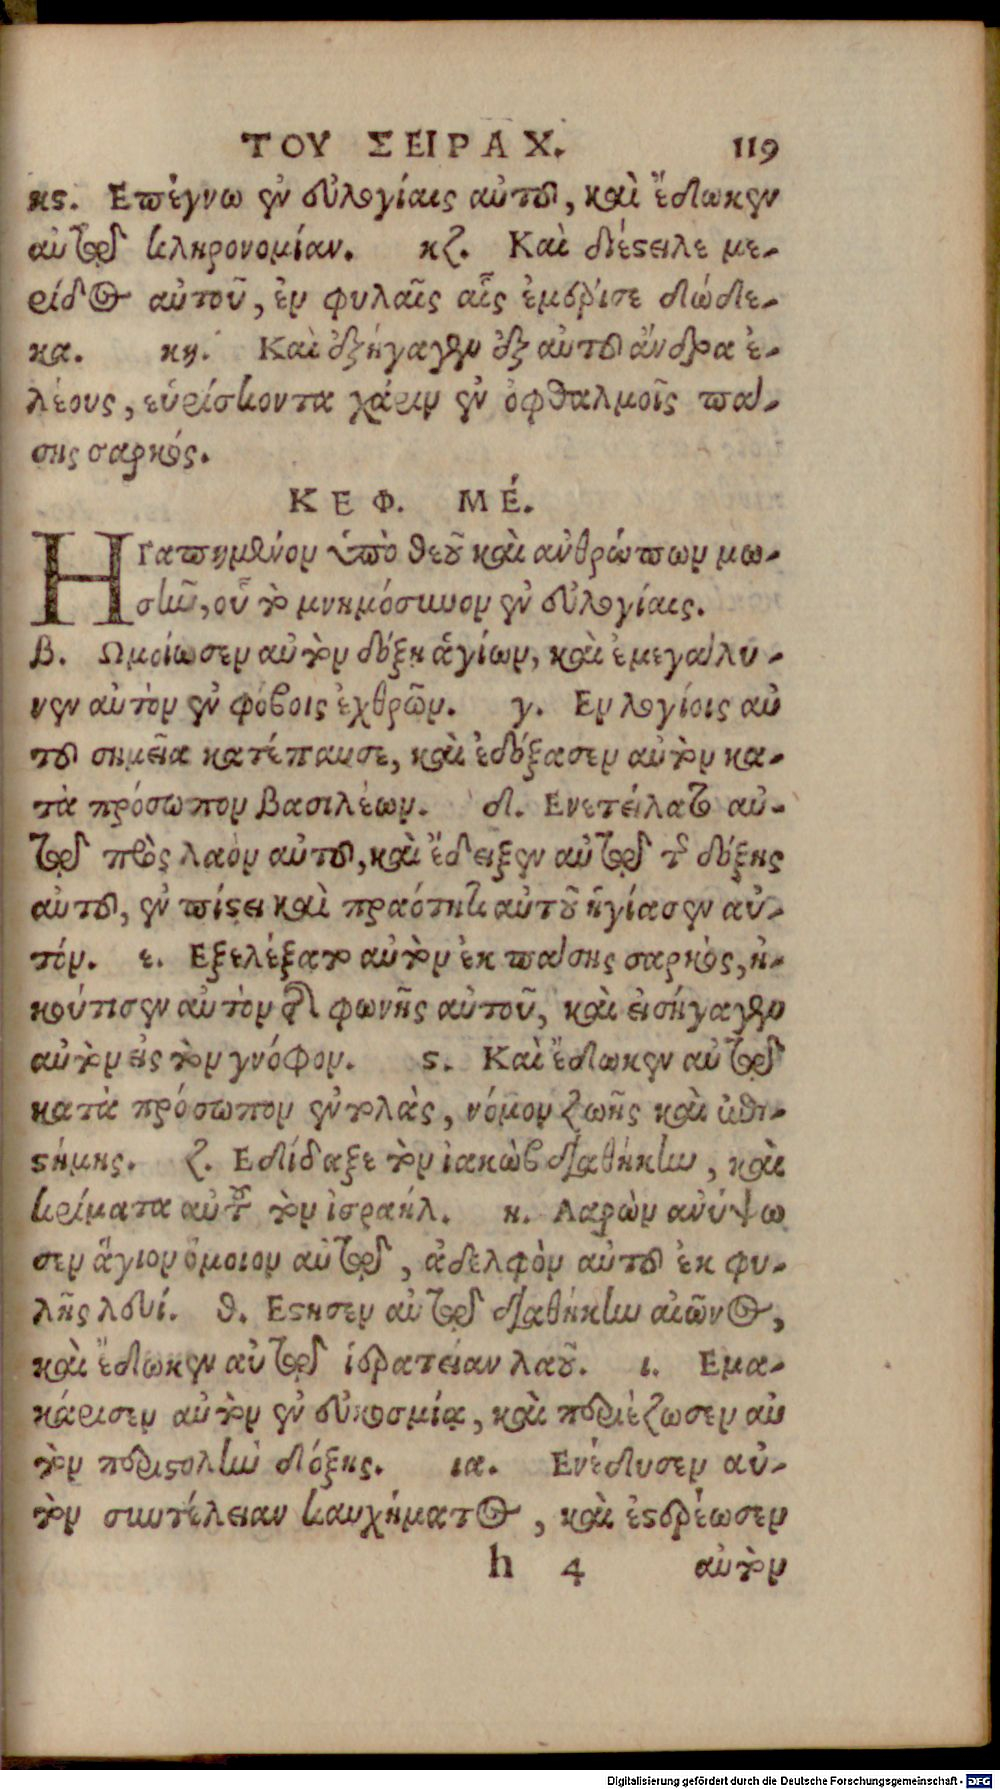 ΤΟΥ ΣΕΙΡΑΧ. 119
κϛ. Επέγνω ἐν εὐλογίαις αὐτοῦ, καὶ ἔδωκεν
αὐτῷ κληρονομίαν. κζ. Καὶ διέστειλε με-
ρίδας αὐτοῦ, ἐν φυλαῖς αἷς ἐμέρισε δώδε-
κα. κη. Καὶ ἐξήγαγεν ἐξ αὐτοῦ ἄνδρα ἐ-
λέους, εὑρίσκοντα χάριν ἐν ὀφθαλμοῖς πά-
σης σαρκός.
ΚΕΦ. ΜΈ.
ΗΓαπημένον ὑπὸ θεοῦ καὶ ἀνθρώπων μω-
σῆν, οὗ τὸ μνημόσυνον ἐν εὐλογίαις.
β. Ωμοίωσεν αὐτὸν δόξῃ ἁγίων, καὶ ἐμεγάλυ-
νεν αὐτὸν ἐν φόβοις ἐχθρῶν. γ. Εν λογίοις αὐ
τοῦ σημεῖα κατέπαυσε, καὶ ἐδόξασεν αὐτὸν κα-
τὰ πρόσωπον βασιλέων. δ. Ενετείλατο αὐ-
τῷ πρὸς λαὸν αὐτοῦ, καὶ ἔδειξεν αὐτῷ τῆς δόξης
αὐτοῦ, ἐν πίστει καὶ πραότητι αὐτοῦ ἡγίασεν αὐ-
τόν. ε. Εξελέξατο αὐτὸν ἐκ πάσης σαρκὸς, ἠ-
κούτισεν αὐτὸν τῆς φωνῆς αὐτοῦ, καὶ εἰσήγαγεν
αὐτὸν εἰς τὸν γνόφον. ϛ. Καὶ ἔδωκεν αὐτῷ
κατὰ πρόσωπον ἐντολὰς, νόμον ζωῆς καὶ ἐπι-
στήμης. ζ. Εδίδαξε τὸν ἰακὼβ διαθήκην, καὶ
κρίματα αὐτοῦ τὸν ἰσραήλ. η. Ααρὼν ἀνύψω
σεν ἅγιον ὅμοιον αὐτῷ, ἀδελφὸν αὐτοῦ ἐκ φυ-
λῆς λευί. θ. Εστησεν αὐτῷ διαθήκην αἰῶνος,
καὶ ἔδωκεν αὐτῷ ἱερατείαν λαοῦ. ι. Εμα-
κάρισεν αὐτὸν ἐν εὐκοσμίᾳ, καὶ περιέζωσεν αὐ
τὸν περιστολὴν δόξης. ια. Ενέδυσεν αὐ-
τὸν συντέλειαν καυχήματος, καὶ ἐστερέωσεν
h 4 αὐτὸν
Digitalisierung gefördert durch die Deutsche Forschungsgemeinschaft - DFG